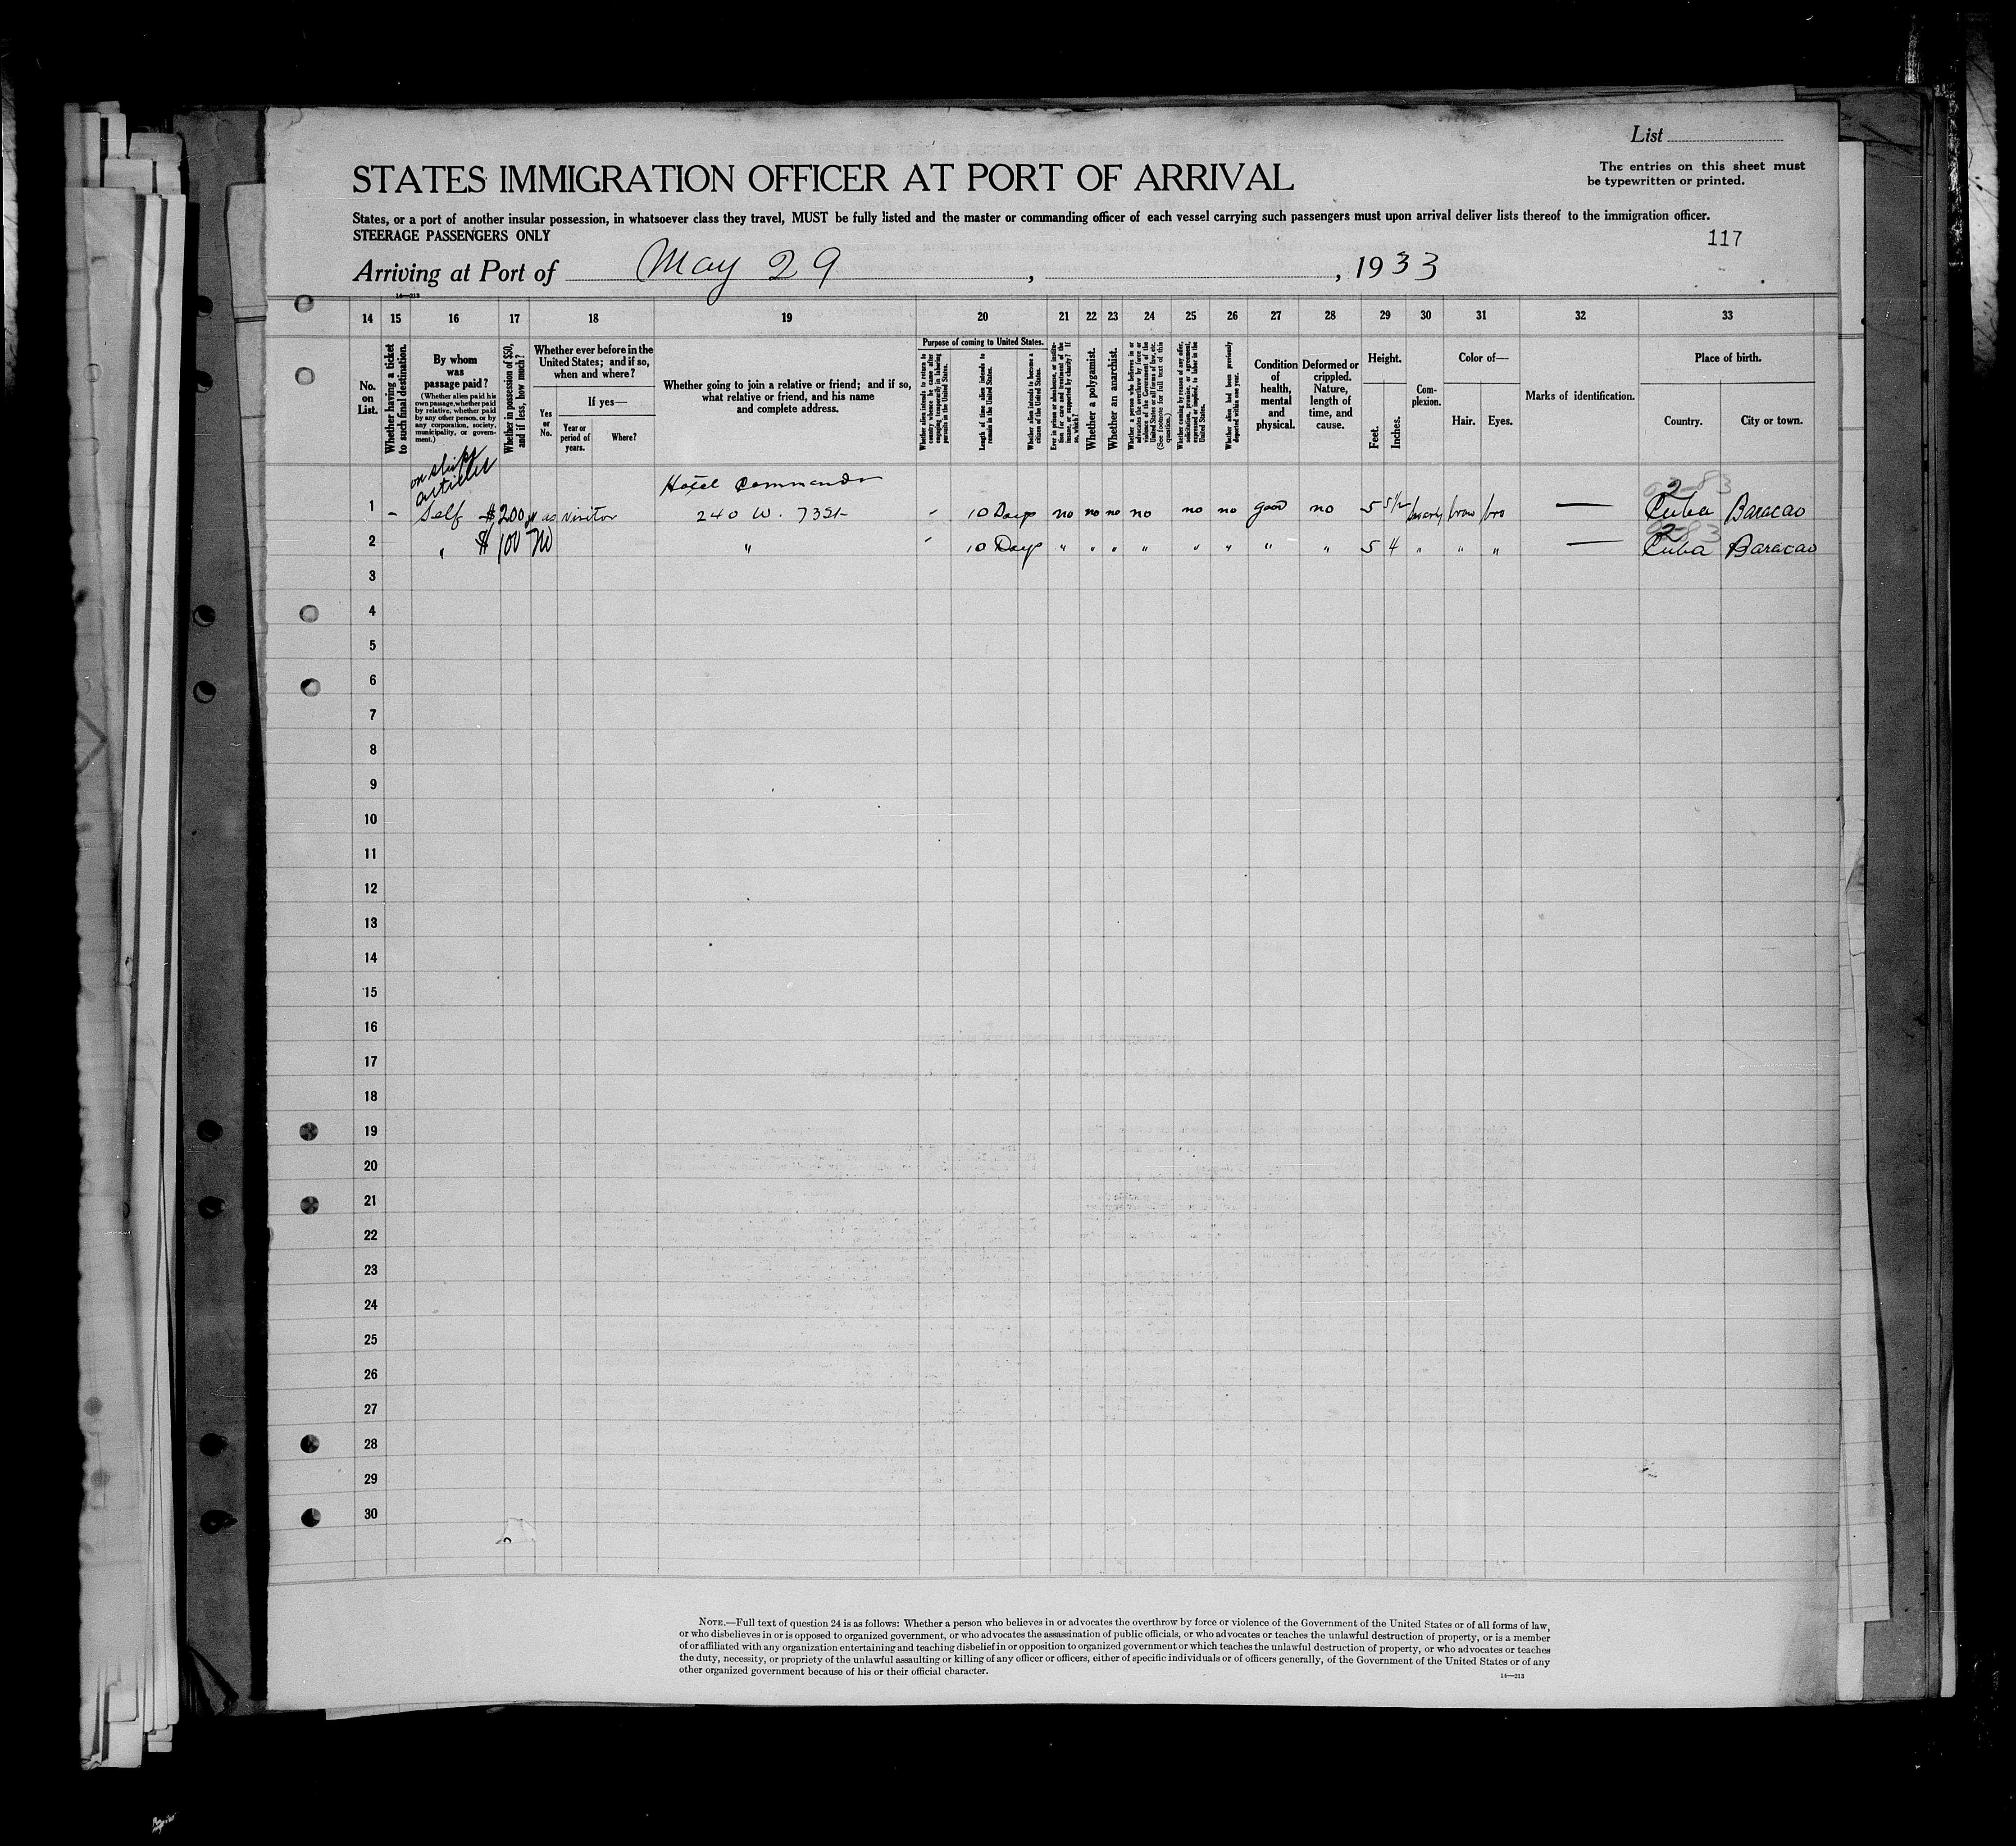 List
The entries on this sheet must
be typewritten or printed.
STATES IMMIGRATION OFFICER AT PORT OF ARRIVAL
States, or a port of another insular possession, in whatsoever class they travel, MUST be fully listed and the master or commanding officer of each vessel carrying such passengers must upon arrival deliver lists thereof to the immigration officer.
STEERAGE PASSENGERS ONLY
117
Arriving at Port of May 29 , , 1933
14—213
14 15 16 17 18 19 20 21 22 23 24 25 26 27 28 29 30 31 32 33
No. on List.
Whether having a ticket to such final destination.
By whom was passage paid?
(Whether alien paid his own passage, whether paid by relative, whether paid by any other person, or by any corporation, society, municipality, or government.)
Whether in possession of $50, and if less, how much?
Whether ever before in the United States; and if so, when and where?
Yes or No.
If yes—
Year or period of years.
Where?
Whether going to join a relative or friend; and if so, what relative or friend, and his name and complete address.
Purpose of coming to United States.
Whether alien intends to return to country whence he came after engaging temporarily in laboring pursuits in the United States.
Length of time alien intends to remain in the United States.
Whether alien intends to become a citizen of the United States.
Ever in prison or almshouse, or institution for care and treatment of the insane, or supported by charity? If so, which?
Whether a polygamist.
Whether an anarchist.
Whether a person who believes in or advocates the overthrow by force or violence of the Government of the United States or all forms of law, etc. (See footnote for full text of this question.)
Whether coming by reason of any offer, solicitation, promise, or agreement, expressed or implied, to labor in the United States.
Whether alien had been previously deported within one year.
Condition of health, mental and physical.
Deformed or crippled. Nature, length of time, and cause.
Height.
Feet. Inches.
Complexion.
Color of—
Hair. Eyes.
Marks of identification.
Place of birth.
Country. City or town.
on ships articles
Hotel Commander
1 – Self $200 as visitor 240 W. 73 St 10 Days no no no no no no good no 5 5 1/2 brow bro — Cuba Baracao
2 " $100 No " 10 Days " " " " " " " " 5 4 " " " — Cuba Baracao
3
4
5
6
7
8
9
10
11
12
13
14
15
16
17
18
19
20
21
22
23
24
25
26
27
28
29
30
NOTE.—Full text of question 24 is as follows: Whether a person who believes in or advocates the overthrow by force or violence of the Government of the United States or of all forms of law,
or who disbelieves in or is opposed to organized government, or who advocates the assassination of public officials, or who advocates or teaches the unlawful destruction of property, or is a member
of or affiliated with any organization entertaining and teaching disbelief in or opposition to organized government or which teaches the unlawful destruction of property, or who advocates or teaches
the duty, necessity, or propriety of the unlawful assaulting or killing of any officer or officers, either of specific individuals or of officers generally, of the Government of the United States or of any
other organized government because of his or their official character.
14—213